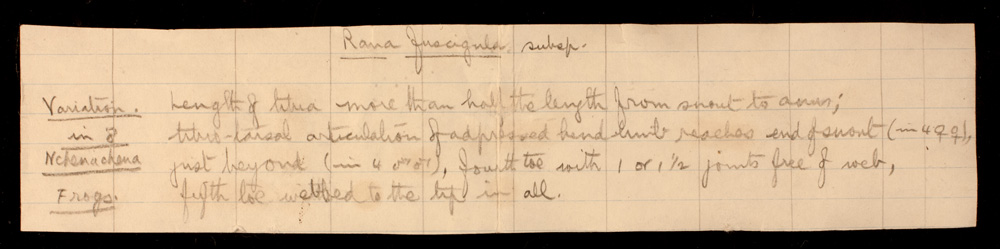 Rana fuscigula subsp.
Variation. Length of tibia more than half the length from snout to anus;
in 8 tibio-tarsal articulation of adpressed hind limb reaches end of snout (in 4 ♀♀),
Nchenachena just beyond (in 4 ♂♂), fourth toe with 1 or 1 1/2 joints free of web,
Frogs. fifth toe webbed to the tip in all.